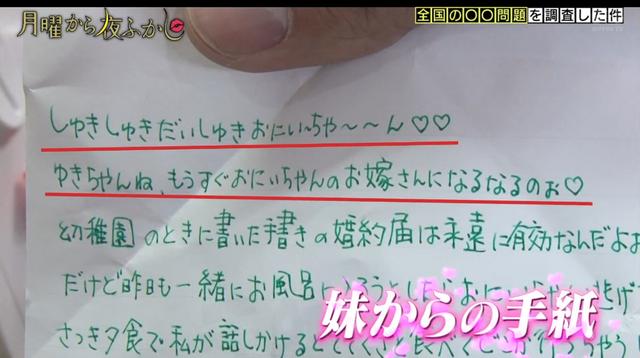 月曜から夜ふかし
全国の〇〇問題を調査した件
しゅきしゅきだいしゅきおにいーちゃ〜〜ん♡♡
ゆきちゃんね、もうすぐおにいちゃんのお嫁さんになるなるのぉ♡
幼稚園のときに書いた手書きの婚約届は永遠に有効なんだよぉ
だけど昨日も一緒にお風呂に
妹からの手紙
さっき夕食で私が話しかけると